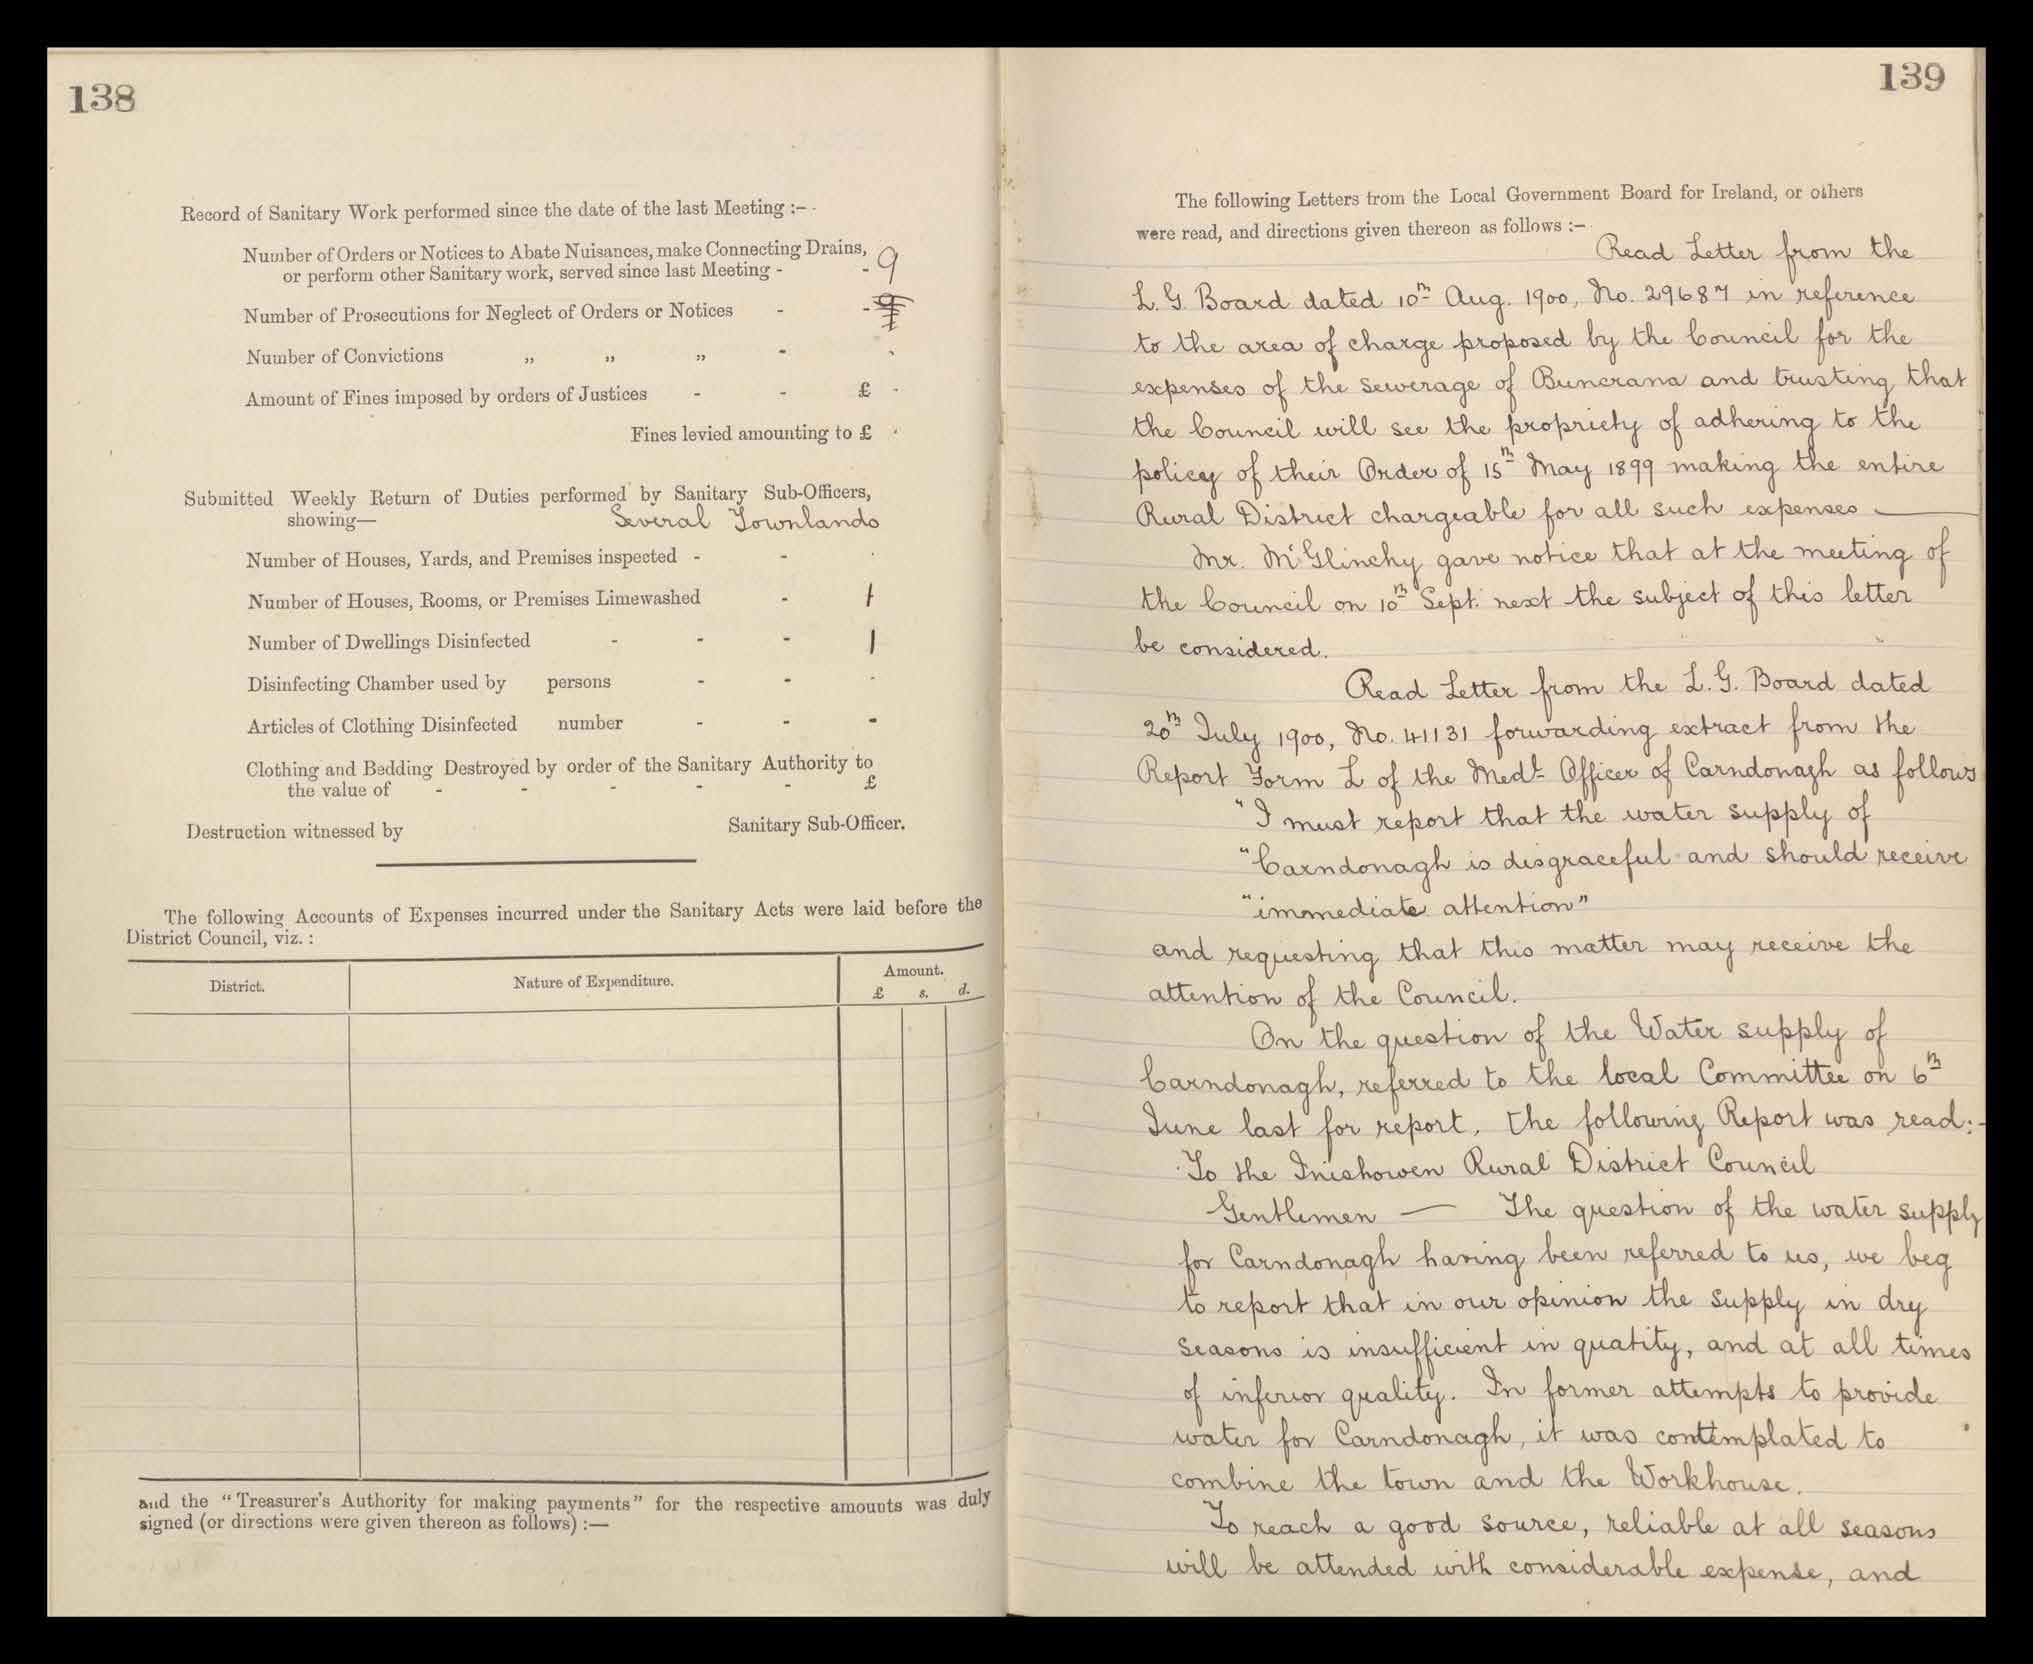 138
Record of Sanitary Work performed since the date of the last Meeting :–
Number of Orders or Notices to Abate Nuisances, make Connecting Drains,
or perform other Sanitary work, served since last Meeting - - 9
Number of Prosecutions for Neglect of Orders or Notices - -
Number of Convictions „ „ „ -
Amount of Fines imposed by orders of Justices - - £ -
Fines levied amounting to £
Submitted Weekly Return of Duties performed by Sanitary Sub-Officers,
showing— Several Townlands
Number of Houses, Yards, and Premises inspected - -
Number of Houses, Rooms, or Premises Limewashed - 1
Number of Dwellings Disinfected - - - 1
Disinfecting Chamber used by persons - - -
Articles of Clothing Disinfected number - - -
Clothing and Bedding Destroyed by order of the Sanitary Authority to
the value of - - - - - £
Destruction witnessed by Sanitary Sub-Officer.
The following Accounts of Expenses incurred under the Sanitary Acts were laid before the
District Council, viz. :
District. Nature of Expenditure. Amount.
£ s. d.
and the "Treasurer's Authority for making payments" for the respective amounts was duly
signed (or directions were given thereon as follows) :—
139
The following Letters from the Local Government Board for Ireland, or others
were read, and directions given thereon as follows :–
Read Letter from the
L. G. Board dated 10th Aug. 1900, No. 29687 in reference
to the area of charge proposed by the Council for the
expenses of the sewerage of Buncrana and trusting that
the Council will see the propriety of adhering to the
policy of their Order of 15th May 1899 making the entire
Rural District chargeable for all such expenses —
Mr. McGlinchy gave notice that at the meeting of
the Council on 10th Sept. next the subject of this letter
be considered.
Read Letter from the L. G. Board dated
20th July 1900, No. 41131 forwarding extract from the
Report Form L of the Medl Officer of Carndonagh as follows
"I must report that the water supply of
"Carndonagh is disgraceful and should receive
"immediate attention"
and requesting that this matter may receive the
attention of the Council.
On the question of the Water supply of
Carndonagh, referred to the local Committee on 6th
June last for report, the following Report was read:-
To the Inishowen Rural District Council
Gentlemen — The question of the water supply
for Carndonagh having been referred to us, we beg
to report that in our opinion the supply in dry
seasons is insufficient in quatity, and at all times
of inferior quality. In former attempts to provide
water for Carndonagh, it was contemplated to
combine the town and the Workhouse.
To reach a good source, reliable at all seasons
will be attended with considerable expense, and